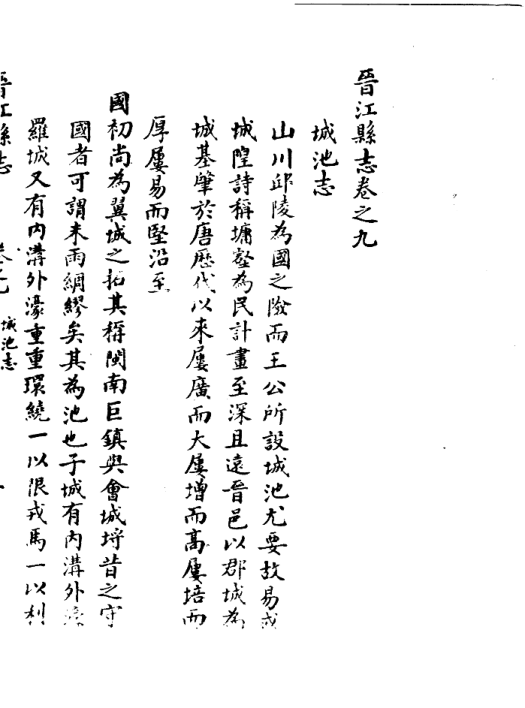 晉江縣志卷之九
城池志
山川邱陵為國之險而王公所設城池尤要故易或
城隍詩稱墉壑為民計畫至深且遠晉邑以郡城為
城基肇於唐歷代以來屢廣而大屢增而高屢培而
厚屢易而堅沿至
國初尚為翼城之拓其稱閩南巨鎮與會城埒昔之守
國者可謂未雨綢繆矣其為池也子城有內溝外濠
羅城又有內溝外濠重重環繞一以限戎馬一以利
晉江縣志 卷之九 城池志 一